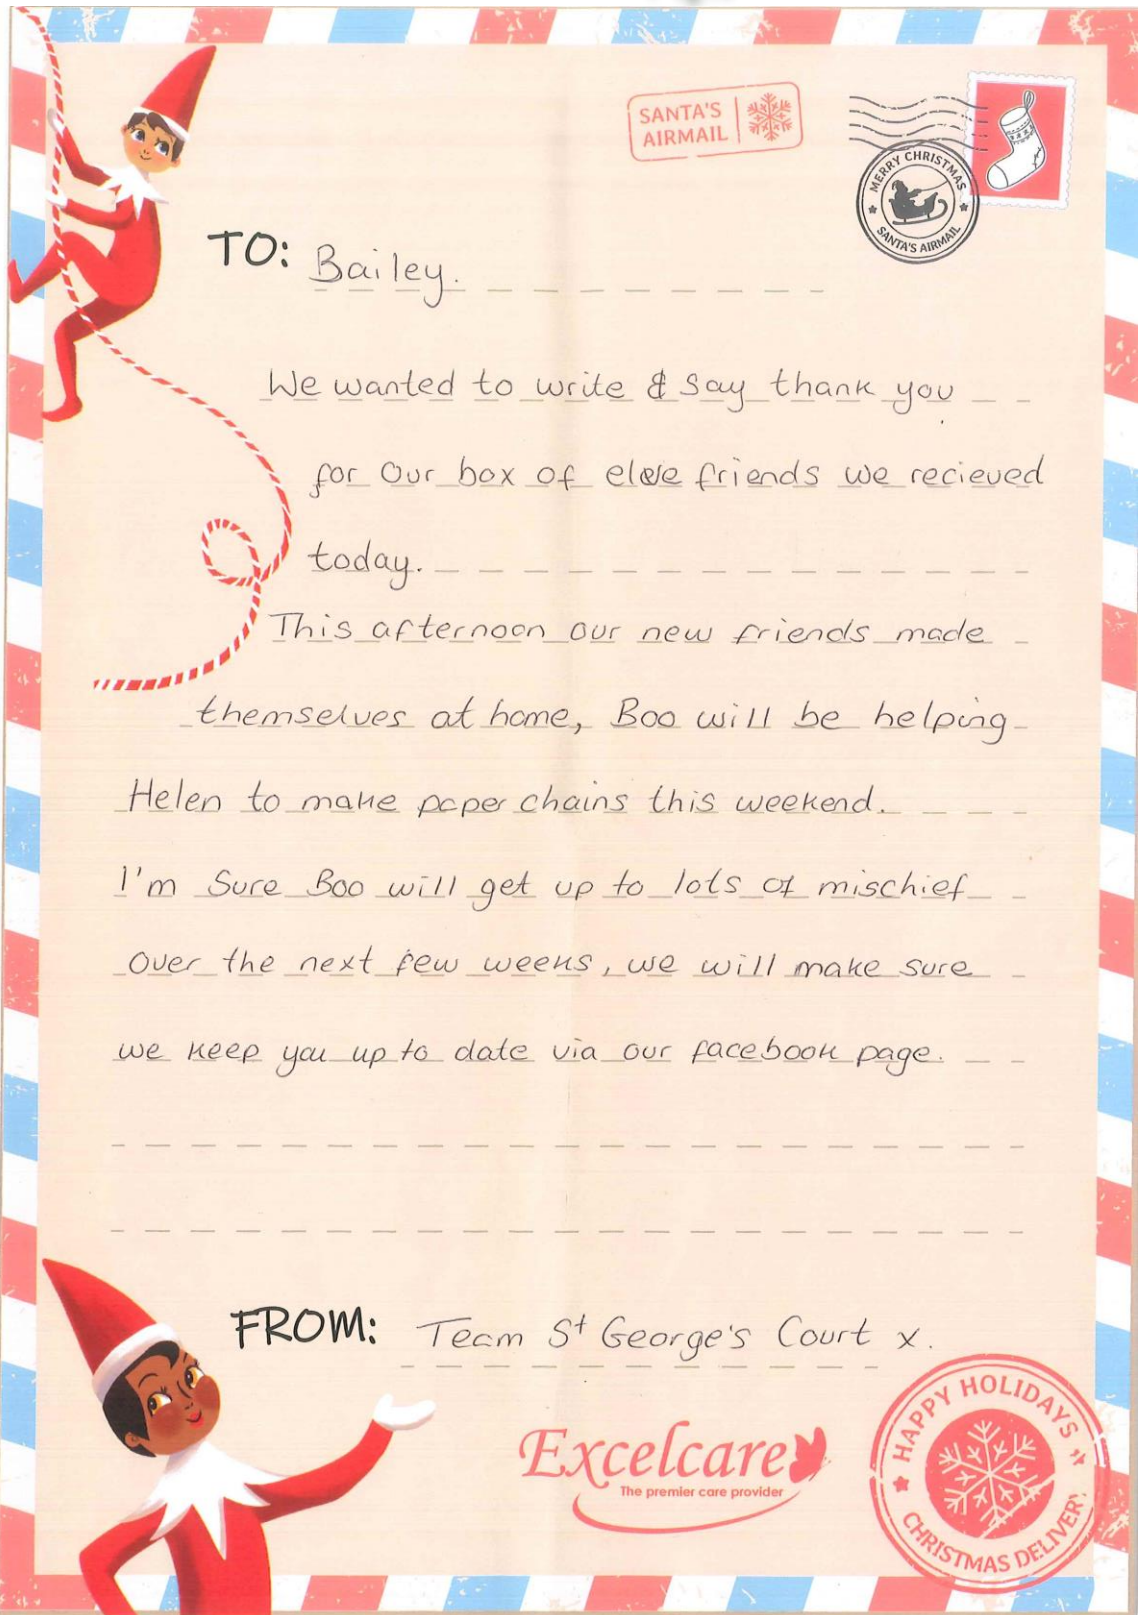 SANTA'S
AIRMAIL
MERRY CHRISTMAS
SANTA'S AIRMAIL
TO: Bailey.
We wanted to write & say thank you
for our box of elve friends we recieved
today.
This afternoon our new friends made
themselves at home, Boo will be helping
Helen to make paper chains this weekend.
I'm Sure Boo will get up to lots of mischief
over the next few weeks, we will make sure
we keep you up to date via our facebook page.
FROM: Team St George's Court x.
Excelcare
The premier care provider
HAPPY HOLIDAYS
CHRISTMAS DELIVERY